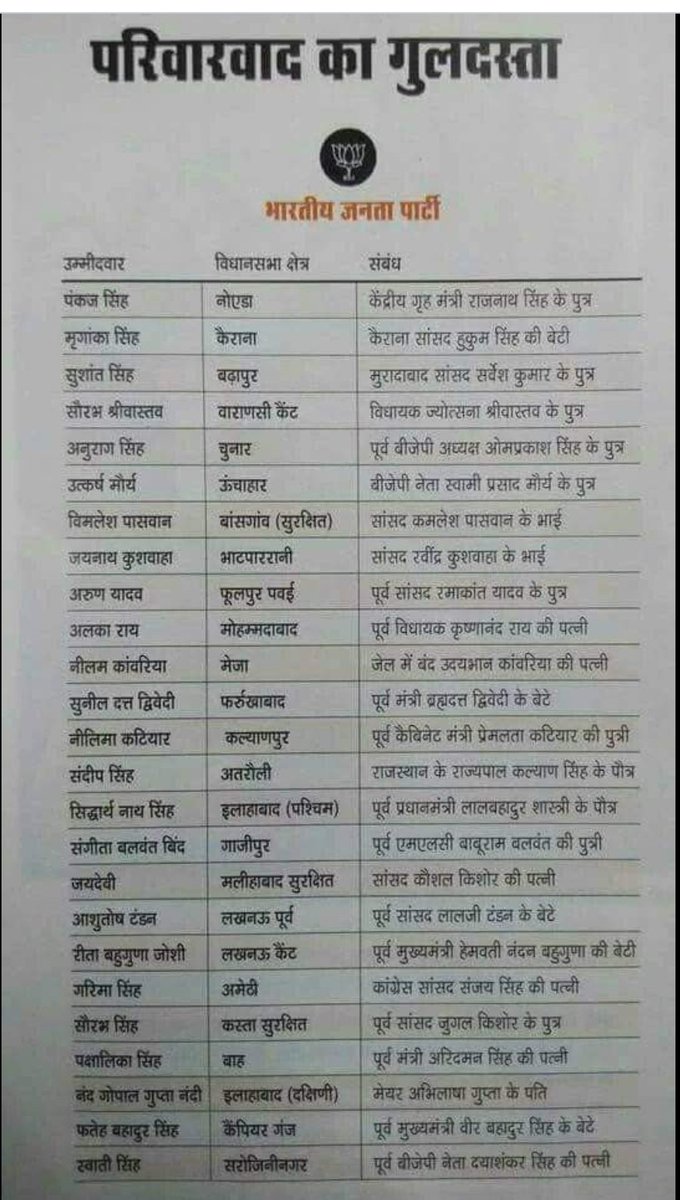 परिवारवाद का गुलदस्ता
भारतीय जनता पार्टी
उम्मीदवार विधानसभा क्षेत्र संबंध
पंकज सिंह नोएडा केंद्रीय गृह मंत्री राजनाथ सिंह के पुत्र
मृगांका सिंह कैराना कैराना सांसद हुकुम सिंह की बेटी
सुशांत सिंह बढ़ापुर मुरादाबाद सांसद सर्वेश कुमार के पुत्र
सौरभ श्रीवास्तव वाराणसी कैंट विधायक ज्योत्सना श्रीवास्तव के पुत्र
अनुराग सिंह चुनार पूर्व बीजेपी अध्यक्ष ओमप्रकाश सिंह के पुत्र
उत्कर्ष मौर्य ऊंचाहार बीजेपी नेता स्वामी प्रसाद मौर्य के पुत्र
विमलेश पासवान बांसगांव (सुरक्षित) सांसद कमलेश पासवान के भाई
जयनाथ कुशवाहा भाटपाररानी सांसद रवींद्र कुशवाहा के भाई
अरुण यादव फूलपुर पवई पूर्व सांसद रमाकांत यादव के पुत्र
अलका राय मोहम्मदाबाद पूर्व विधायक कृष्णानंद राय की पत्नी
नीलम कांवरिया मेजा जेल में बंद उदयभान कांवरिया की पत्नी
सुनील दत्त द्विवेदी फर्रुखाबाद पूर्व मंत्री ब्रह्मदत्त द्विवेदी के बेटे
नीलिमा कटियार कल्याणपुर पूर्व कैबिनेट मंत्री प्रेमलता कटियार की पुत्री
संदीप सिंह अतरौली राजस्थान के राज्यपाल कल्याण सिंह के पौत्र
सिद्धार्थ नाथ सिंह इलाहाबाद (पश्चिम) पूर्व प्रधानमंत्री लालबहादुर शास्त्री के पौत्र
संगीता बलवंत बिंद गाजीपुर पूर्व एमएलसी बाबूराम बलवंत की पुत्री
जयदेवी मलीहाबाद सुरक्षित सांसद कौशल किशोर की पत्नी
आशुतोष टंडन लखनऊ पूर्व पूर्व सांसद लालजी टंडन के बेटे
रीता बहुगुणा जोशी लखनऊ कैंट पूर्व मुख्यमंत्री हेमवती नंदन बहुगुणा की बेटी
गरिमा सिंह अमेठी कांग्रेस सांसद संजय सिंह की पत्नी
सौरभ सिंह कस्ता सुरक्षित पूर्व सांसद जुगल किशोर के पुत्र
पक्षालिका सिंह बाह पूर्व मंत्री अरिदमन सिंह की पत्नी
नंद गोपाल गुप्ता नंदी इलाहाबाद (दक्षिणी) मेयर अभिलाषा गुप्ता के पति
फतेह बहादुर सिंह कैंपियर गंज पूर्व मुख्यमंत्री वीर बहादुर सिंह के बेटे
स्वाती सिंह सरोजिनीनगर पूर्व बीजेपी नेता दयाशंकर सिंह की पत्नी